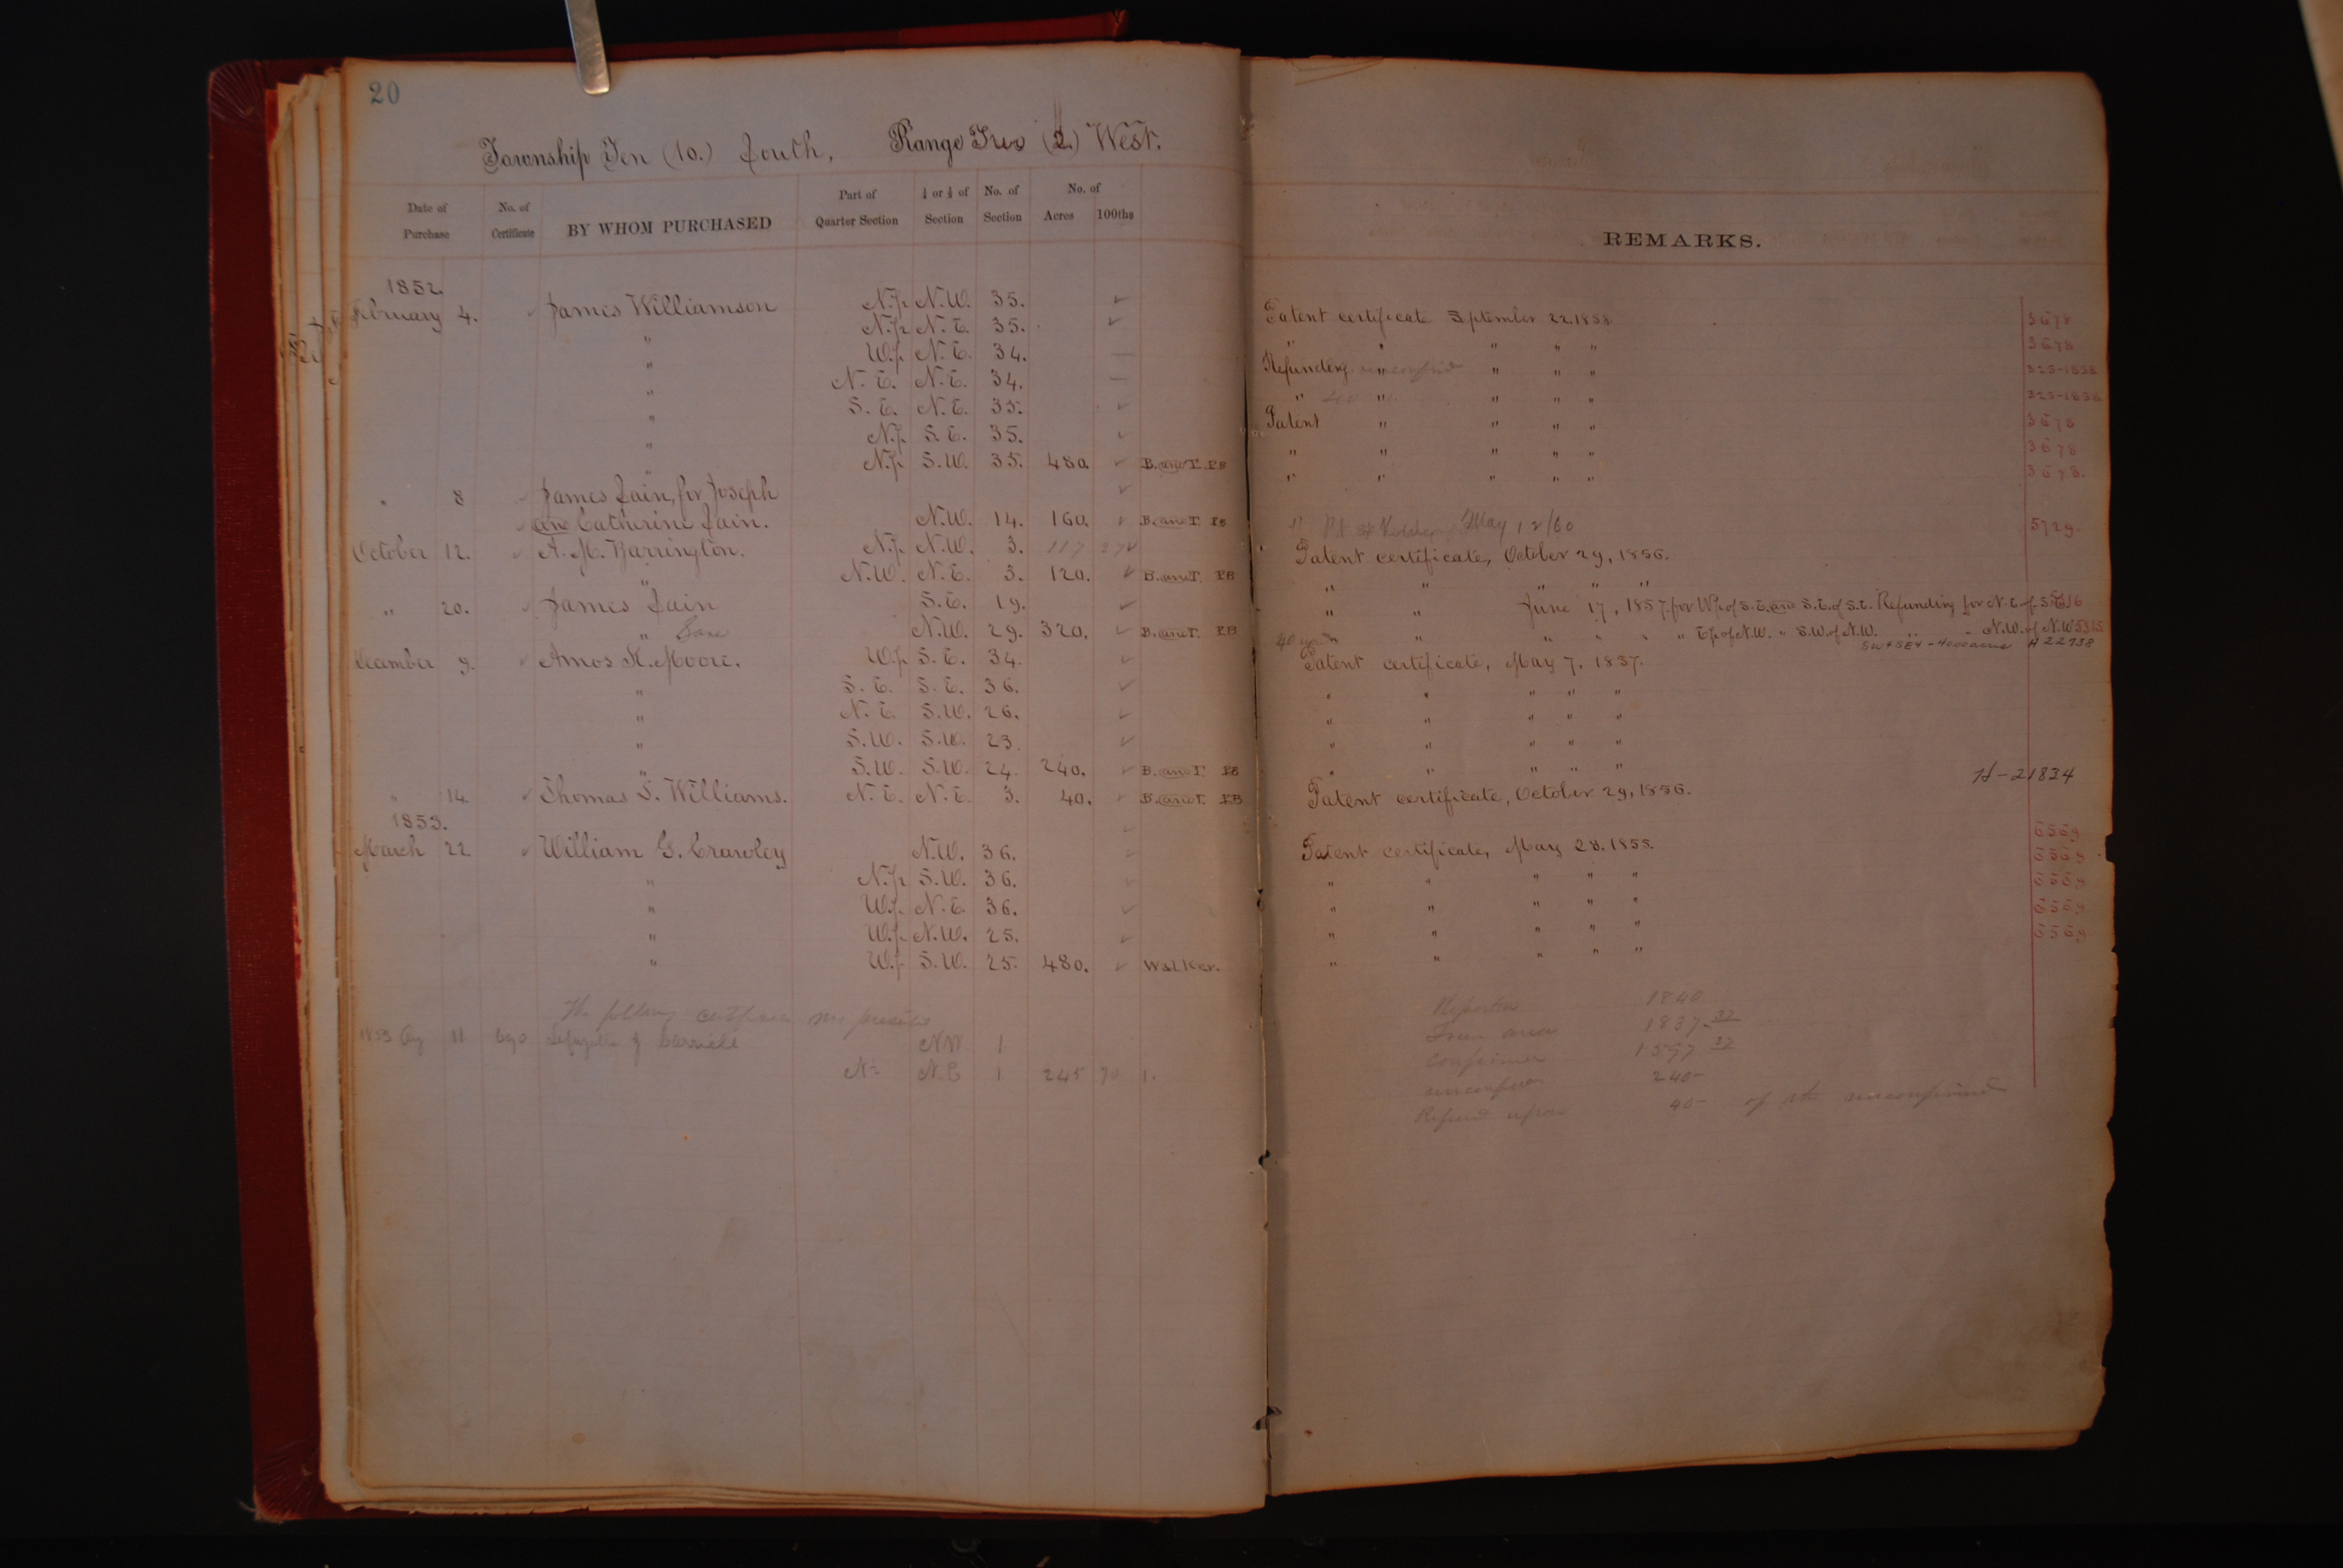 20
Township Ten (10.) South, Range Two (2.) West.
Date of Purchase No. of Certificate BY WHOM PURCHASED Part of Quarter Section ¼ or ½ of Section No. of Section No. of Acres 100ths
REMARKS.
1852.
February 4. James Williamson N.½ N.W. 35. ✓ Patent certificate September 22. 1858 3678
" N.½ N.E. 35. ✓ " " " " " 3678
" W.½ N.E. 34. — Refunding " " " " 325-1858
" N.E. N.E. 34. — " 40 " " " " 325-1858
" S.E. N.E. 35. ✓ Patent " " " " 3678
" N.½ S.E. 35. ✓ " " " " " 3678
" N.½ S.W. 35. 480. ✓ B. and T. PB " " " " " 3678.
" 8 James Zain, for Joseph ✓
and Catherine Zain. N.W. 14. 160. ✓ B. and T. PB May 12/60 5729.
October 12. A. M. Barrington. N.½ N.W. 3. 117 27 ✓ Patent certificate, October 29, 1856.
" N.W. N.E. 3. 120. ✓ B. and T. PB " " " " "
" 20. James Zain S.E. 19. ✓ " " June 17, 1857. for W½ of S.E. and S.E. of S.E. Refunding for N.E. of S.E.
" N.W. 29. 320. ✓ B. and T. PB 40 " " " " " " E½ of N.W. " S.W. of N.W. " " N.W. of N.W. 5315
H 22738
December 9. Amos K. Moore. W.½ S.E. 34. ✓ Patent certificate, May 7, 1857.
" S.E. S.E. 36. ✓ " " " " "
" N.E. S.W. 26. ✓ " " " " "
" S.W. S.W. 23. ✓ " " " " "
" S.W. S.W. 24. 240. ✓ B. and T. PB " " " " " H-21834
" 14. Thomas S. Williams. N.E. N.E. 3. 40. ✓ B. and T. PB Patent certificate, October 29, 1856.
1853.
March 22 William G. Crawley N.W. 36. ✓ Patent certificate, May 28. 1858. 6569
" N.½ S.W. 36. ✓ " " " " " 6569
" W.½ N.E. 36. ✓ " " " " " 6569
" W.½ N.W. 25. ✓ " " " " " 6569
" W.½ S.W. 25. 480. ✓ Walker. " " " " " 6569
The following
1853 Aug 11 NW 1
N½ N.E 1 245 70 1.
1840
1837.32
1597 32
unconfirmed 240-
Refund 40- of the unconfirmed